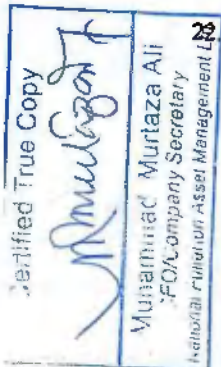 22
Certified True Copy
Muhammad Murtaza Ali
CFO/Company Secretary
National Asset Management